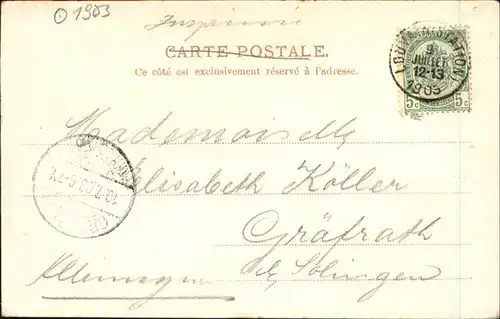 1903
Imprimé
CARTE POSTALE.
Ce côté est exclusivement réservé à l'adresse.
9
JUILLET
12-13
1903
5c 5c
Mademoiselle
Elisabeth Köller
Gräfrath
Solingen
Allemagne